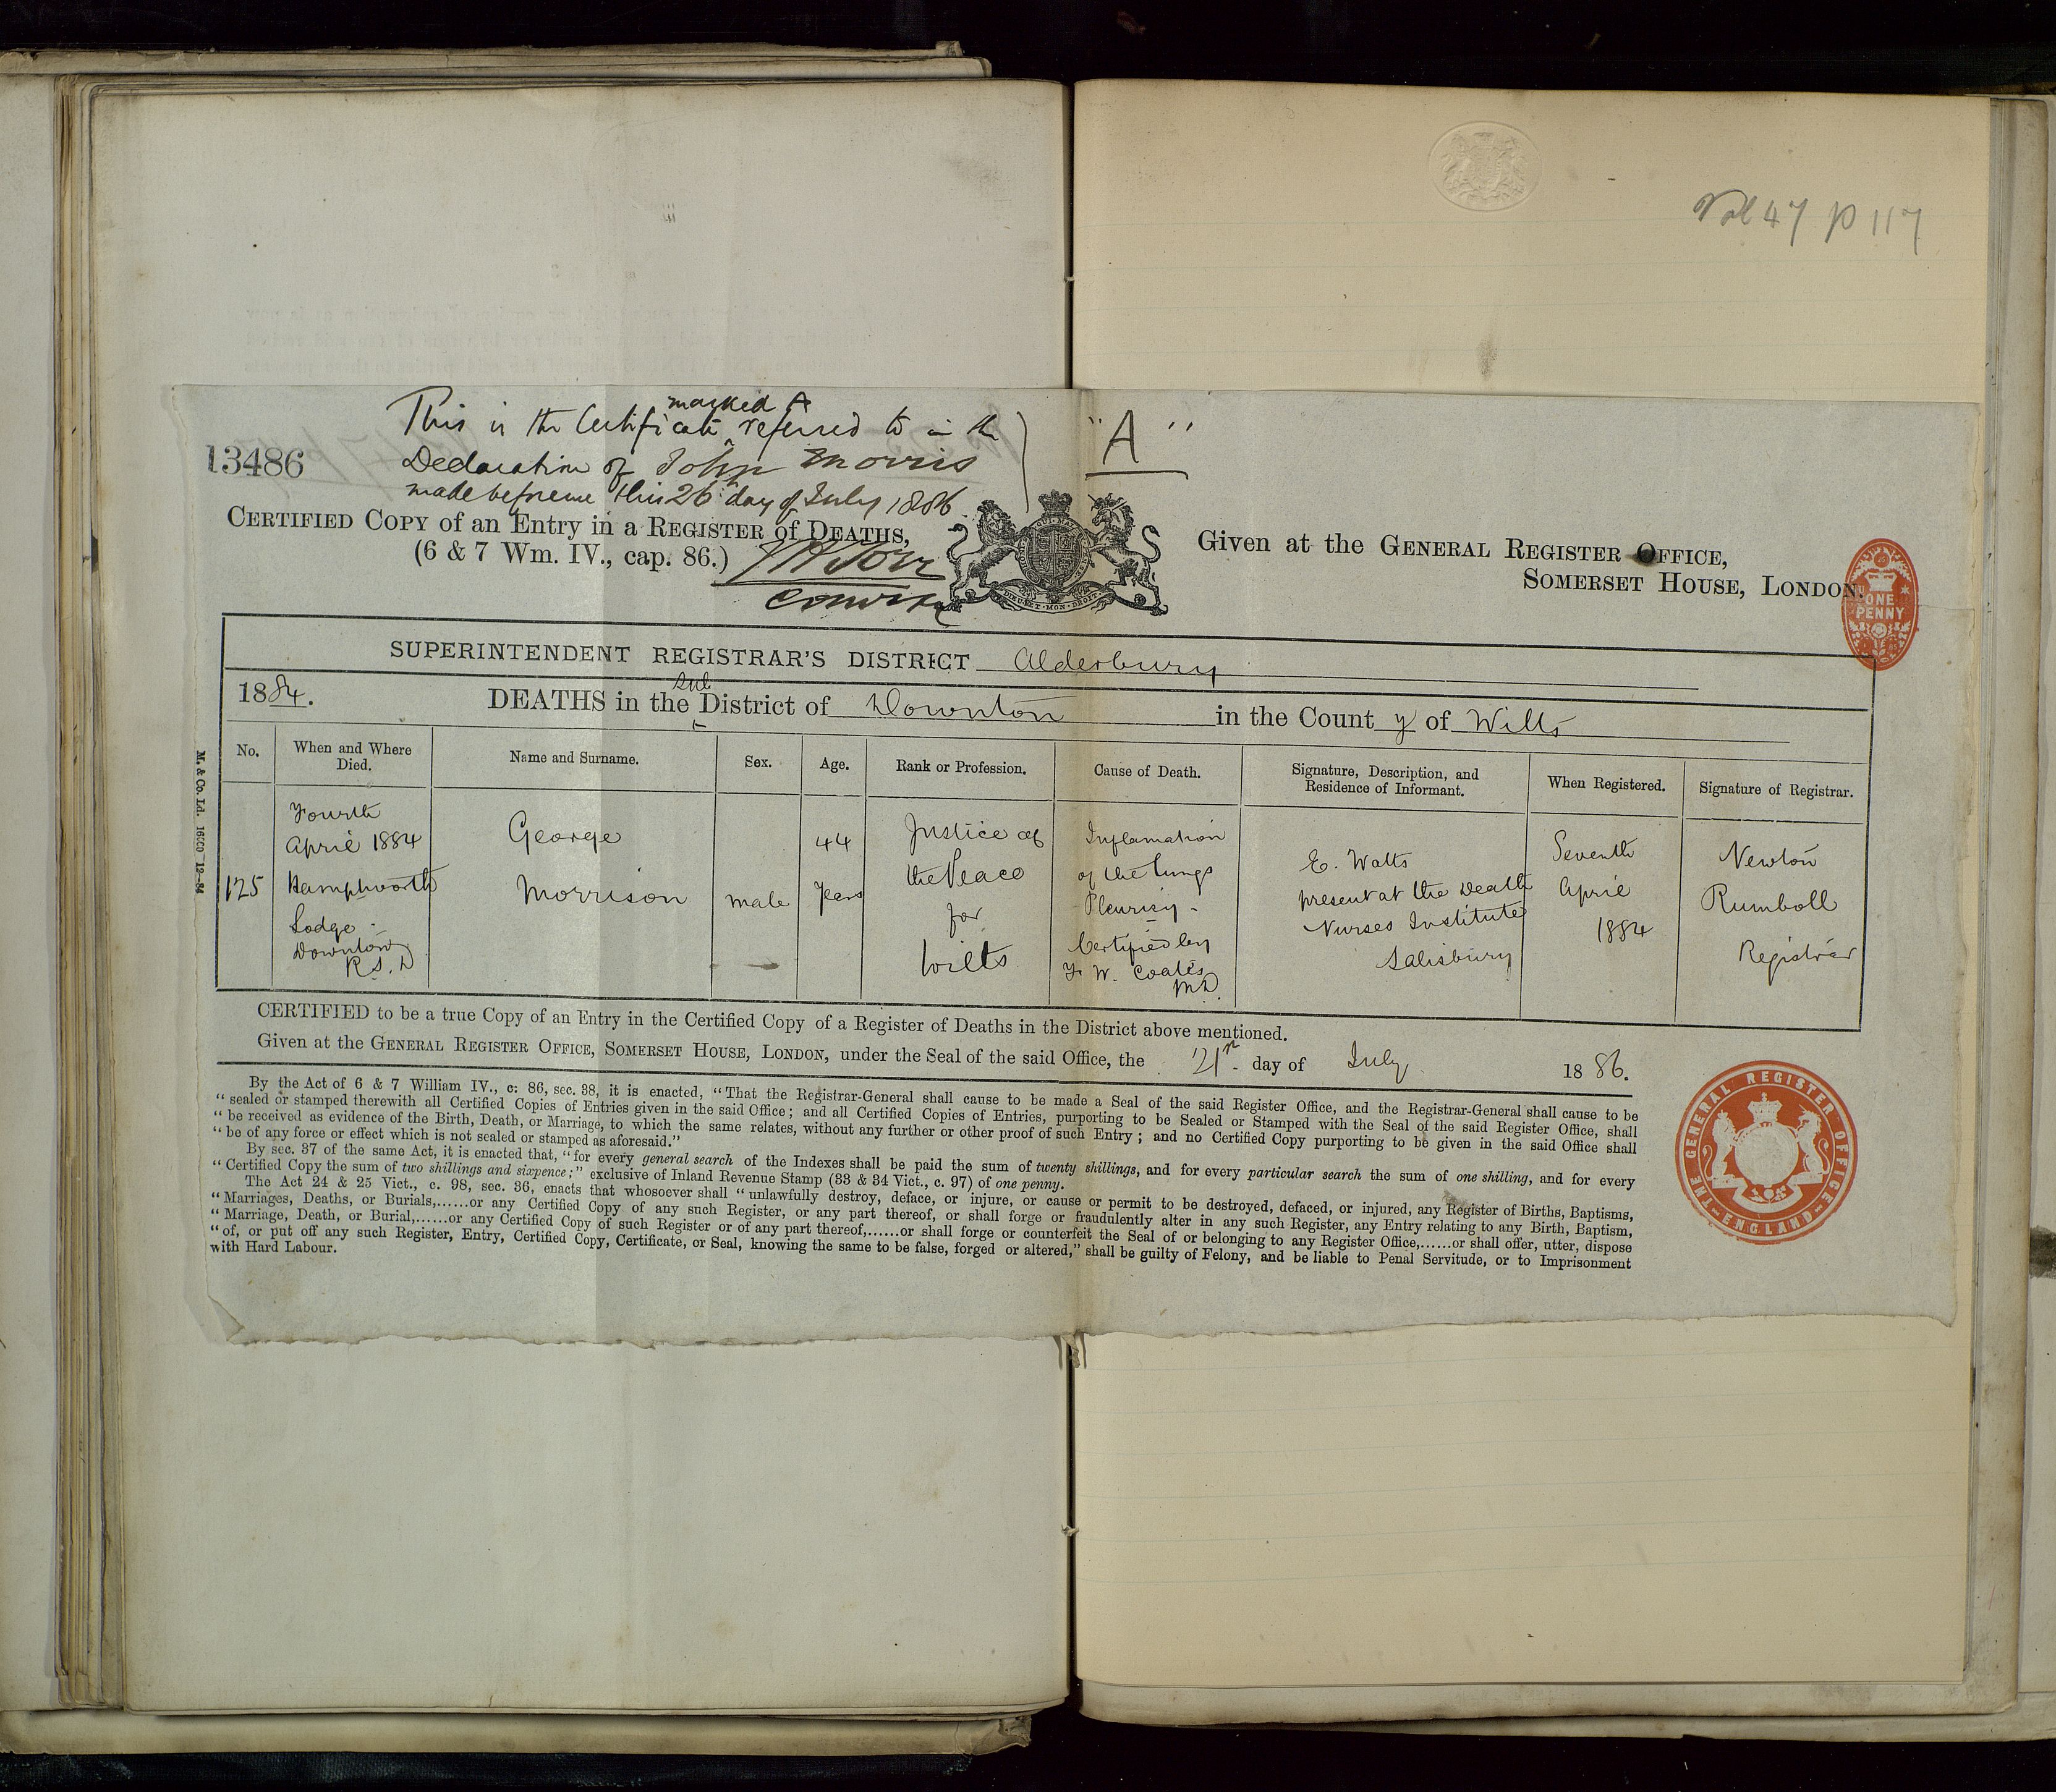 Vol 47 p 117
13486
This is the Certificate marked A referred to in the
Declaration of John Morris
made before me this 26th day of July 1886.
"A"
CERTIFIED COPY of an Entry in a REGISTER of DEATHS,
(6 & 7 Wm. IV., cap. 86.)
DIEU ET MON DROIT
Given at the GENERAL REGISTER OFFICE,
SOMERSET HOUSE, LONDON.
ONE
PENNY
SUPERINTENDENT REGISTRAR'S DISTRICT Alderbury
1884. DEATHS in the Sub District of Downton in the County of Wilts
M. & Co. Ld. 1600 12-84
No. When and Where Died. Name and Surname. Sex. Age. Rank or Profession. Cause of Death. Signature, Description, and Residence of Informant. When Registered. Signature of Registrar.
125
Fourth
April 1884
Hamphworth
Lodge
Downton
R.S.D
George
Morrison
Male
44
Years
Justice of
the Peace
for
Wilts
Inflamation
of the lungs
Pleurisy
Certified by
F. W. Coates
M.D.
E. Watts
present at the Death
Nurses Institute
Salisbury
Seventh
April
1884
Newton
Rumboll
Registrar
CERTIFIED to be a true Copy of an Entry in the Certified Copy of a Register of Deaths in the District above mentioned.
Given at the GENERAL REGISTER OFFICE, SOMERSET HOUSE, LONDON, under the Seal of the said Office, the 21st day of July 1886.
By the Act of 6 & 7 William IV., c. 86, sec. 38, it is enacted, "That the Registrar-General shall cause to be made a Seal of the said Register Office, and the Registrar-General shall cause to be
"sealed or stamped therewith all Certified Copies of Entries given in the said Office; and all Certified Copies of Entries, purporting to be Sealed or Stamped with the Seal of the said Register Office, shall
"be received as evidence of the Birth, Death, or Marriage, to which the same relates, without any further or other proof of such Entry; and no Certified Copy purporting to be given in the said Office shall
"be of any force or effect which is not sealed or stamped as aforesaid."
By sec. 37 of the same Act, it is enacted that, "for every general search of the Indexes shall be paid the sum of twenty shillings, and for every particular search the sum of one shilling, and for every
"Certified Copy the sum of two shillings and sixpence;" exclusive of Inland Revenue Stamp (33 & 34 Vict., c. 97) of one penny.
The Act 24 & 25 Vict., c. 98, sec. 36, enacts that whosoever shall "unlawfully destroy, deface, or injure, or cause or permit to be destroyed, defaced, or injured, any Register of Births, Baptisms,
"Marriages, Deaths, or Burials,......or any Certified Copy of any such Register, or any part thereof, or shall forge or fraudulently alter in any such Register, any Entry relating to any Birth, Baptism,
"Marriage, Death, or Burial,......or any Certified Copy of such Register or of any part thereof,......or shall forge or counterfeit the Seal of or belonging to any Register Office,......or shall offer, utter, dispose
"of, or put off any such Register, Entry, Certified Copy, Certificate, or Seal, knowing the same to be false, forged or altered," shall be guilty of Felony, and be liable to Penal Servitude, or to Imprisonment
with Hard Labour.
THE GENERAL REGISTER OFFICE
ENGLAND